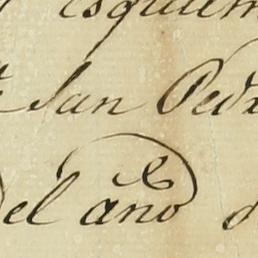 esquiem
San Pedr
del año d